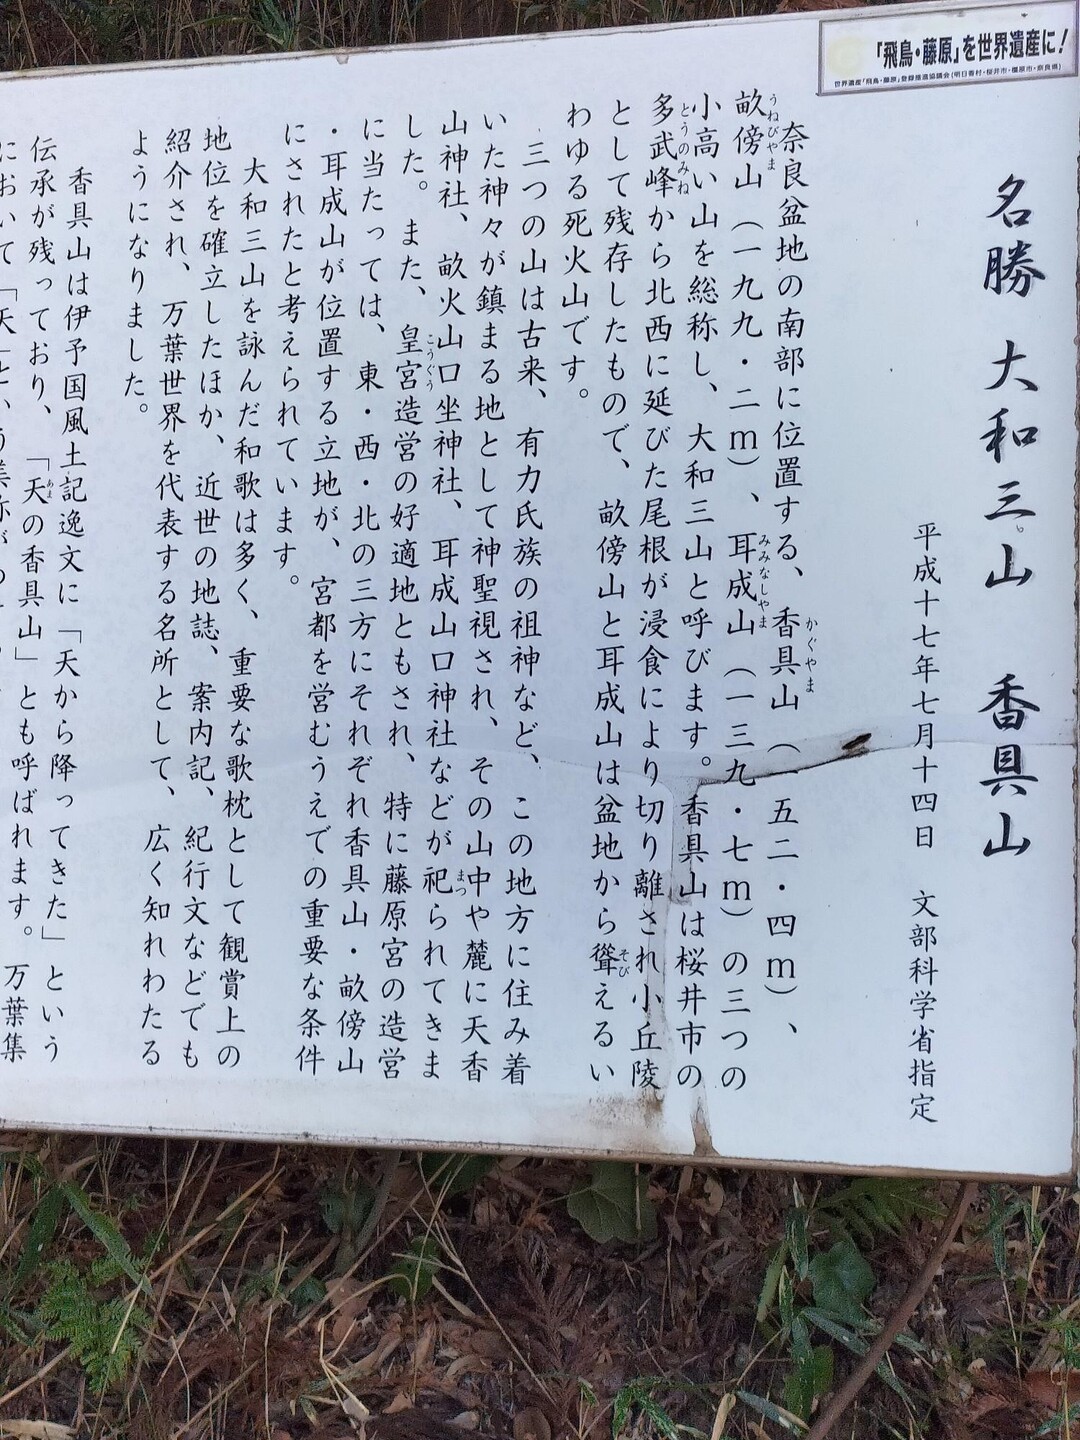 「飛鳥・藤原」を世界遺産に!
世界遺産「飛鳥・藤原」登録推進協議会(明日香村・桜井市・橿原市・奈良県)
名勝 大和三山 香具山
平成十七年七月十四日 文部科学省指定
奈良盆地の南部に位置する、香具山(一五二・四m)、
畝傍山(一九九・二m)、耳成山(一三九・七m)の三つの
小高い山を総称し、大和三山と呼びます。香具山は桜井市の
多武峰から北西に延びた尾根が浸食により切り離され小丘陵
として残存したもので、畝傍山と耳成山は盆地から聳えるい
わゆる死火山です。
三つの山は古来、有力氏族の祖神など、この地方に住み着
いた神々が鎮まる地として神聖視され、その山中や麓に天香
山神社、畝火山口坐神社、耳成山口神社などが祀られてきま
した。また、皇宮造営の好適地ともされ、特に藤原宮の造営
に当たっては、東・西・北の三方にそれぞれ香具山・畝傍山
・耳成山が位置する立地が、宮都を営むうえでの重要な条件
にされたと考えられています。
大和三山を詠んだ和歌は多く、重要な歌枕として観賞上の
地位を確立したほか、近世の地誌、案内記、紀行文などでも
紹介され、万葉世界を代表する名所として、広く知れわたる
ようになりました。
香具山は伊予国風土記逸文に「天から降ってきた」という
伝承が残っており、「天の香具山」とも呼ばれます。万葉集
において「天」という美称が